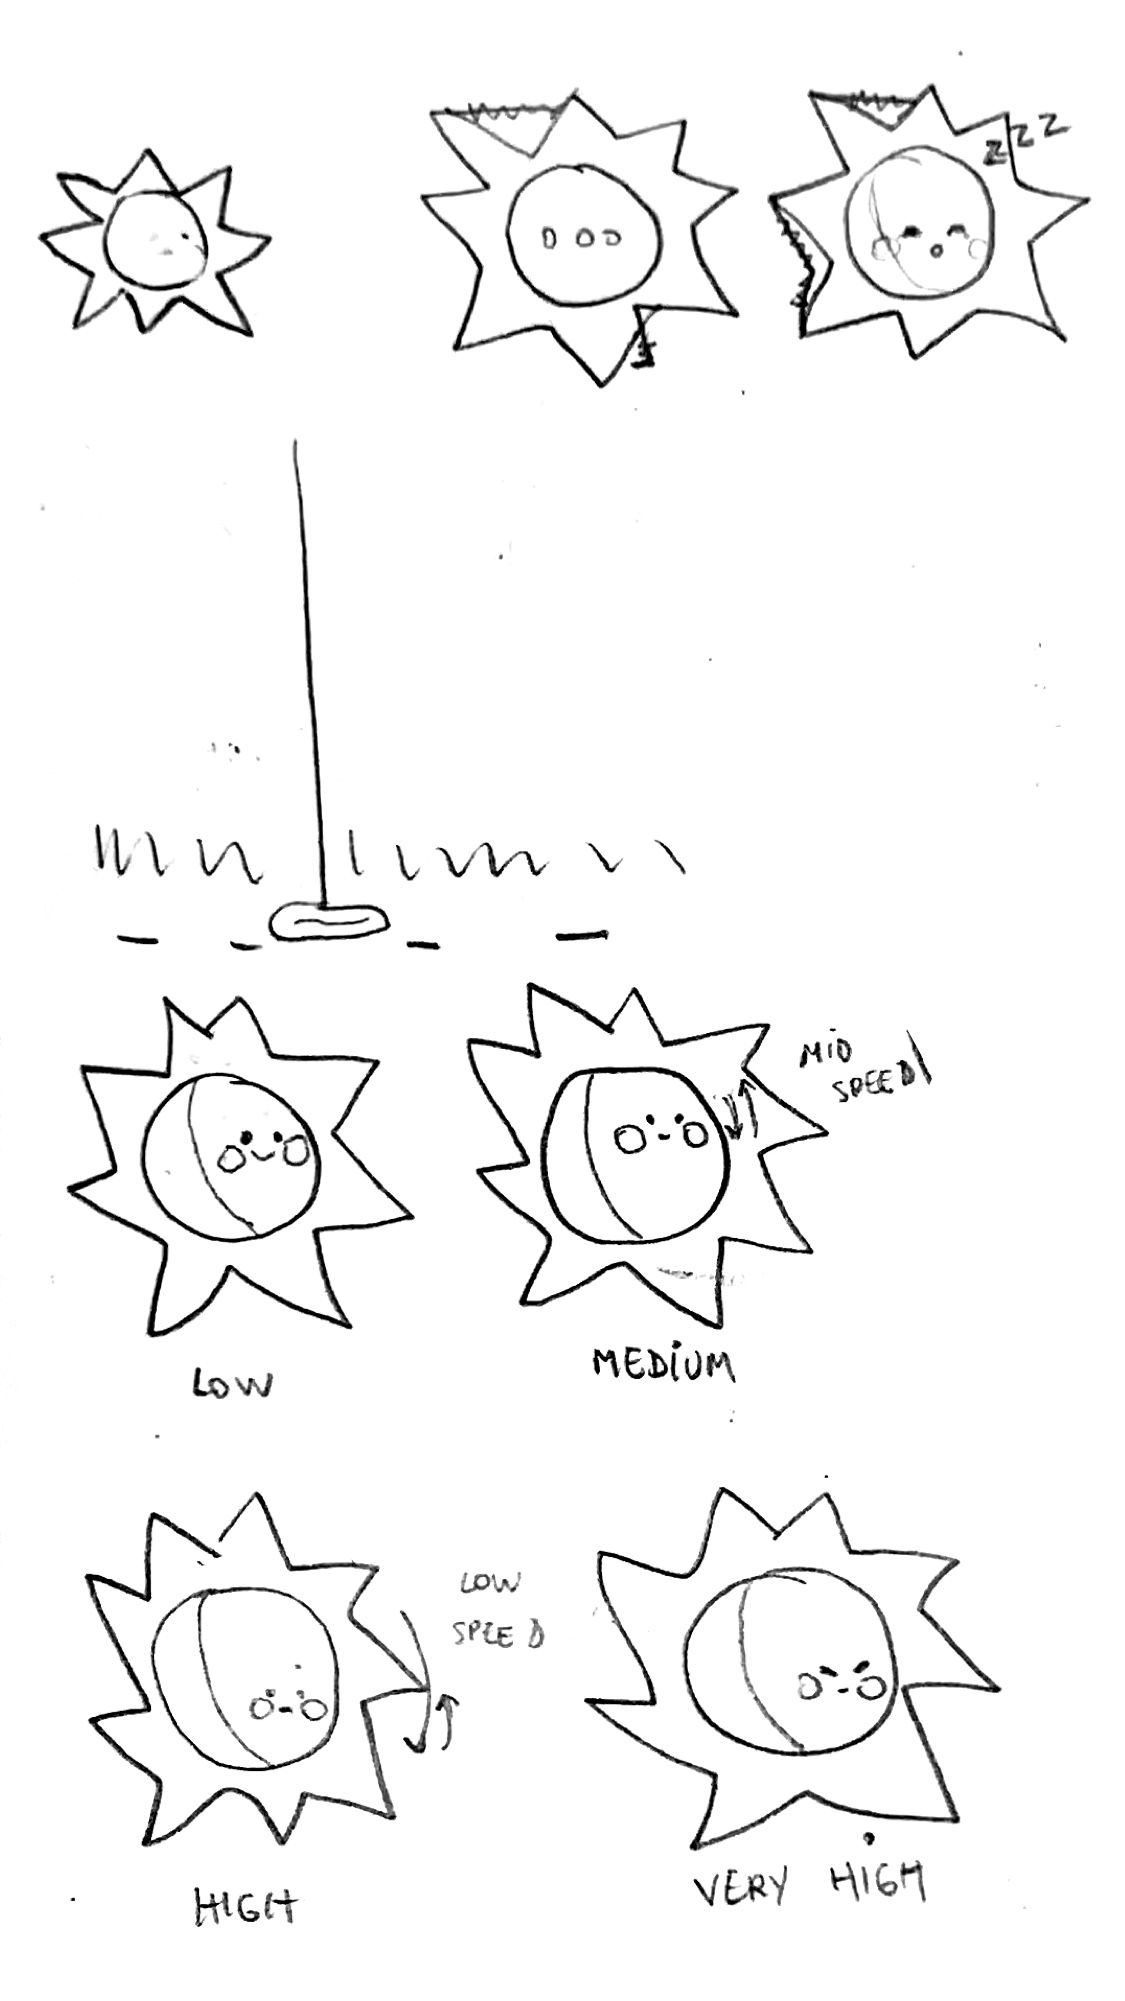 z z z
MiD
SPEED
LOW
MEDiUM
LOW
SPEED
HIGH
VERY HiGH